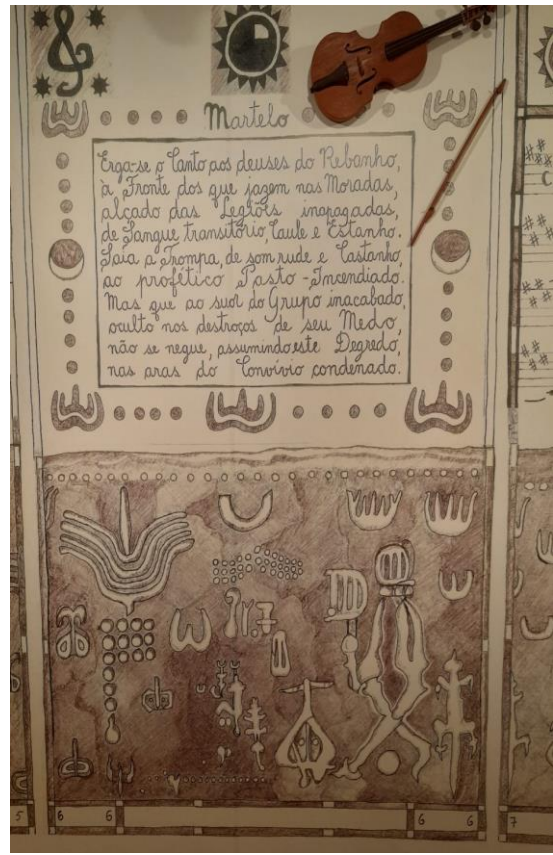 Martelo
Erga-se o Canto aos deuses do Rebanho,
à Fronte dos que jazem nas Moradas,
alçado das Legiões inapagadas,
de Sangue transitório, Caule e Estanho.
Saia a Trompa, de som rude e Castanho,
ao profético Pasto-Incendiado.
Mas que ao suor do Grupo inacabado,
oculto nos destroços de seu Medo,
não se negue, assumindo este Degredo,
nas aras do Convívio condenado.
5
8 6
6 6
7